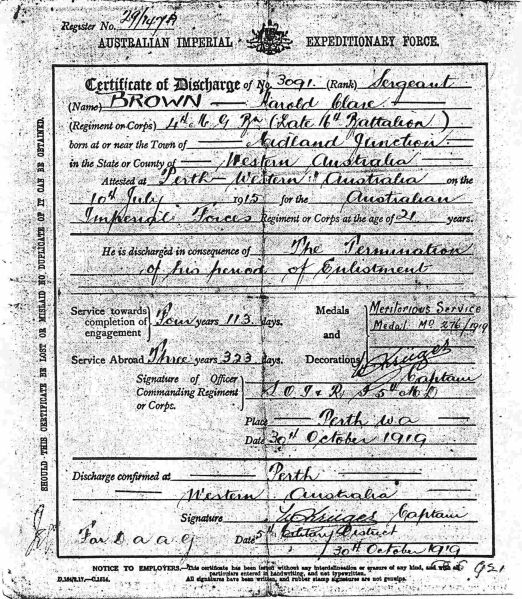 Register No. 29/147A
AUSTRALIAN IMPERIAL EXPEDITIONARY FORCE.
Certificate of Discharge of No. 3091. (Rank) Sergeant
(Name) BROWN — Harold Clare
(Regiment or Corps) 4th M G Bn (Late 16th Battalion)
born at or near the Town of Midland Junction
in the State or County of Western Australia
Attested at Perth — Western Australia on the
10th July 1915 for the Australian
Imperial Forces Regiment or Corps at the age of 21 years.
He is discharged in consequence of The Termination
of his period of Enlistment
Service towards completion of engagement Four years 113 days.
Medals and Decorations Meritorious Service
Medal MO 276/1919
Service Abroad Three years 323 days.
Captain
Signature of Officer
Commanding Regiment
or Corps.
Place Perth W A
Date 30th October 1919
Discharge confirmed at Perth
Western Australia
Signature Captain
For D a a g
5th Military District
Date 30th October 1919
NOTICE TO EMPLOYERS.—This certificate has been issued without any interlineation or erasure of any kind, and with all
particulars entered in handwriting, and not typewritten.
All signatures have been written, and rubber stamp signatures are not genuine.
SHOULD THIS CERTIFICATE BE LOST OR MISLAID NO DUPLICATE OF IT CAN BE OBTAINED.